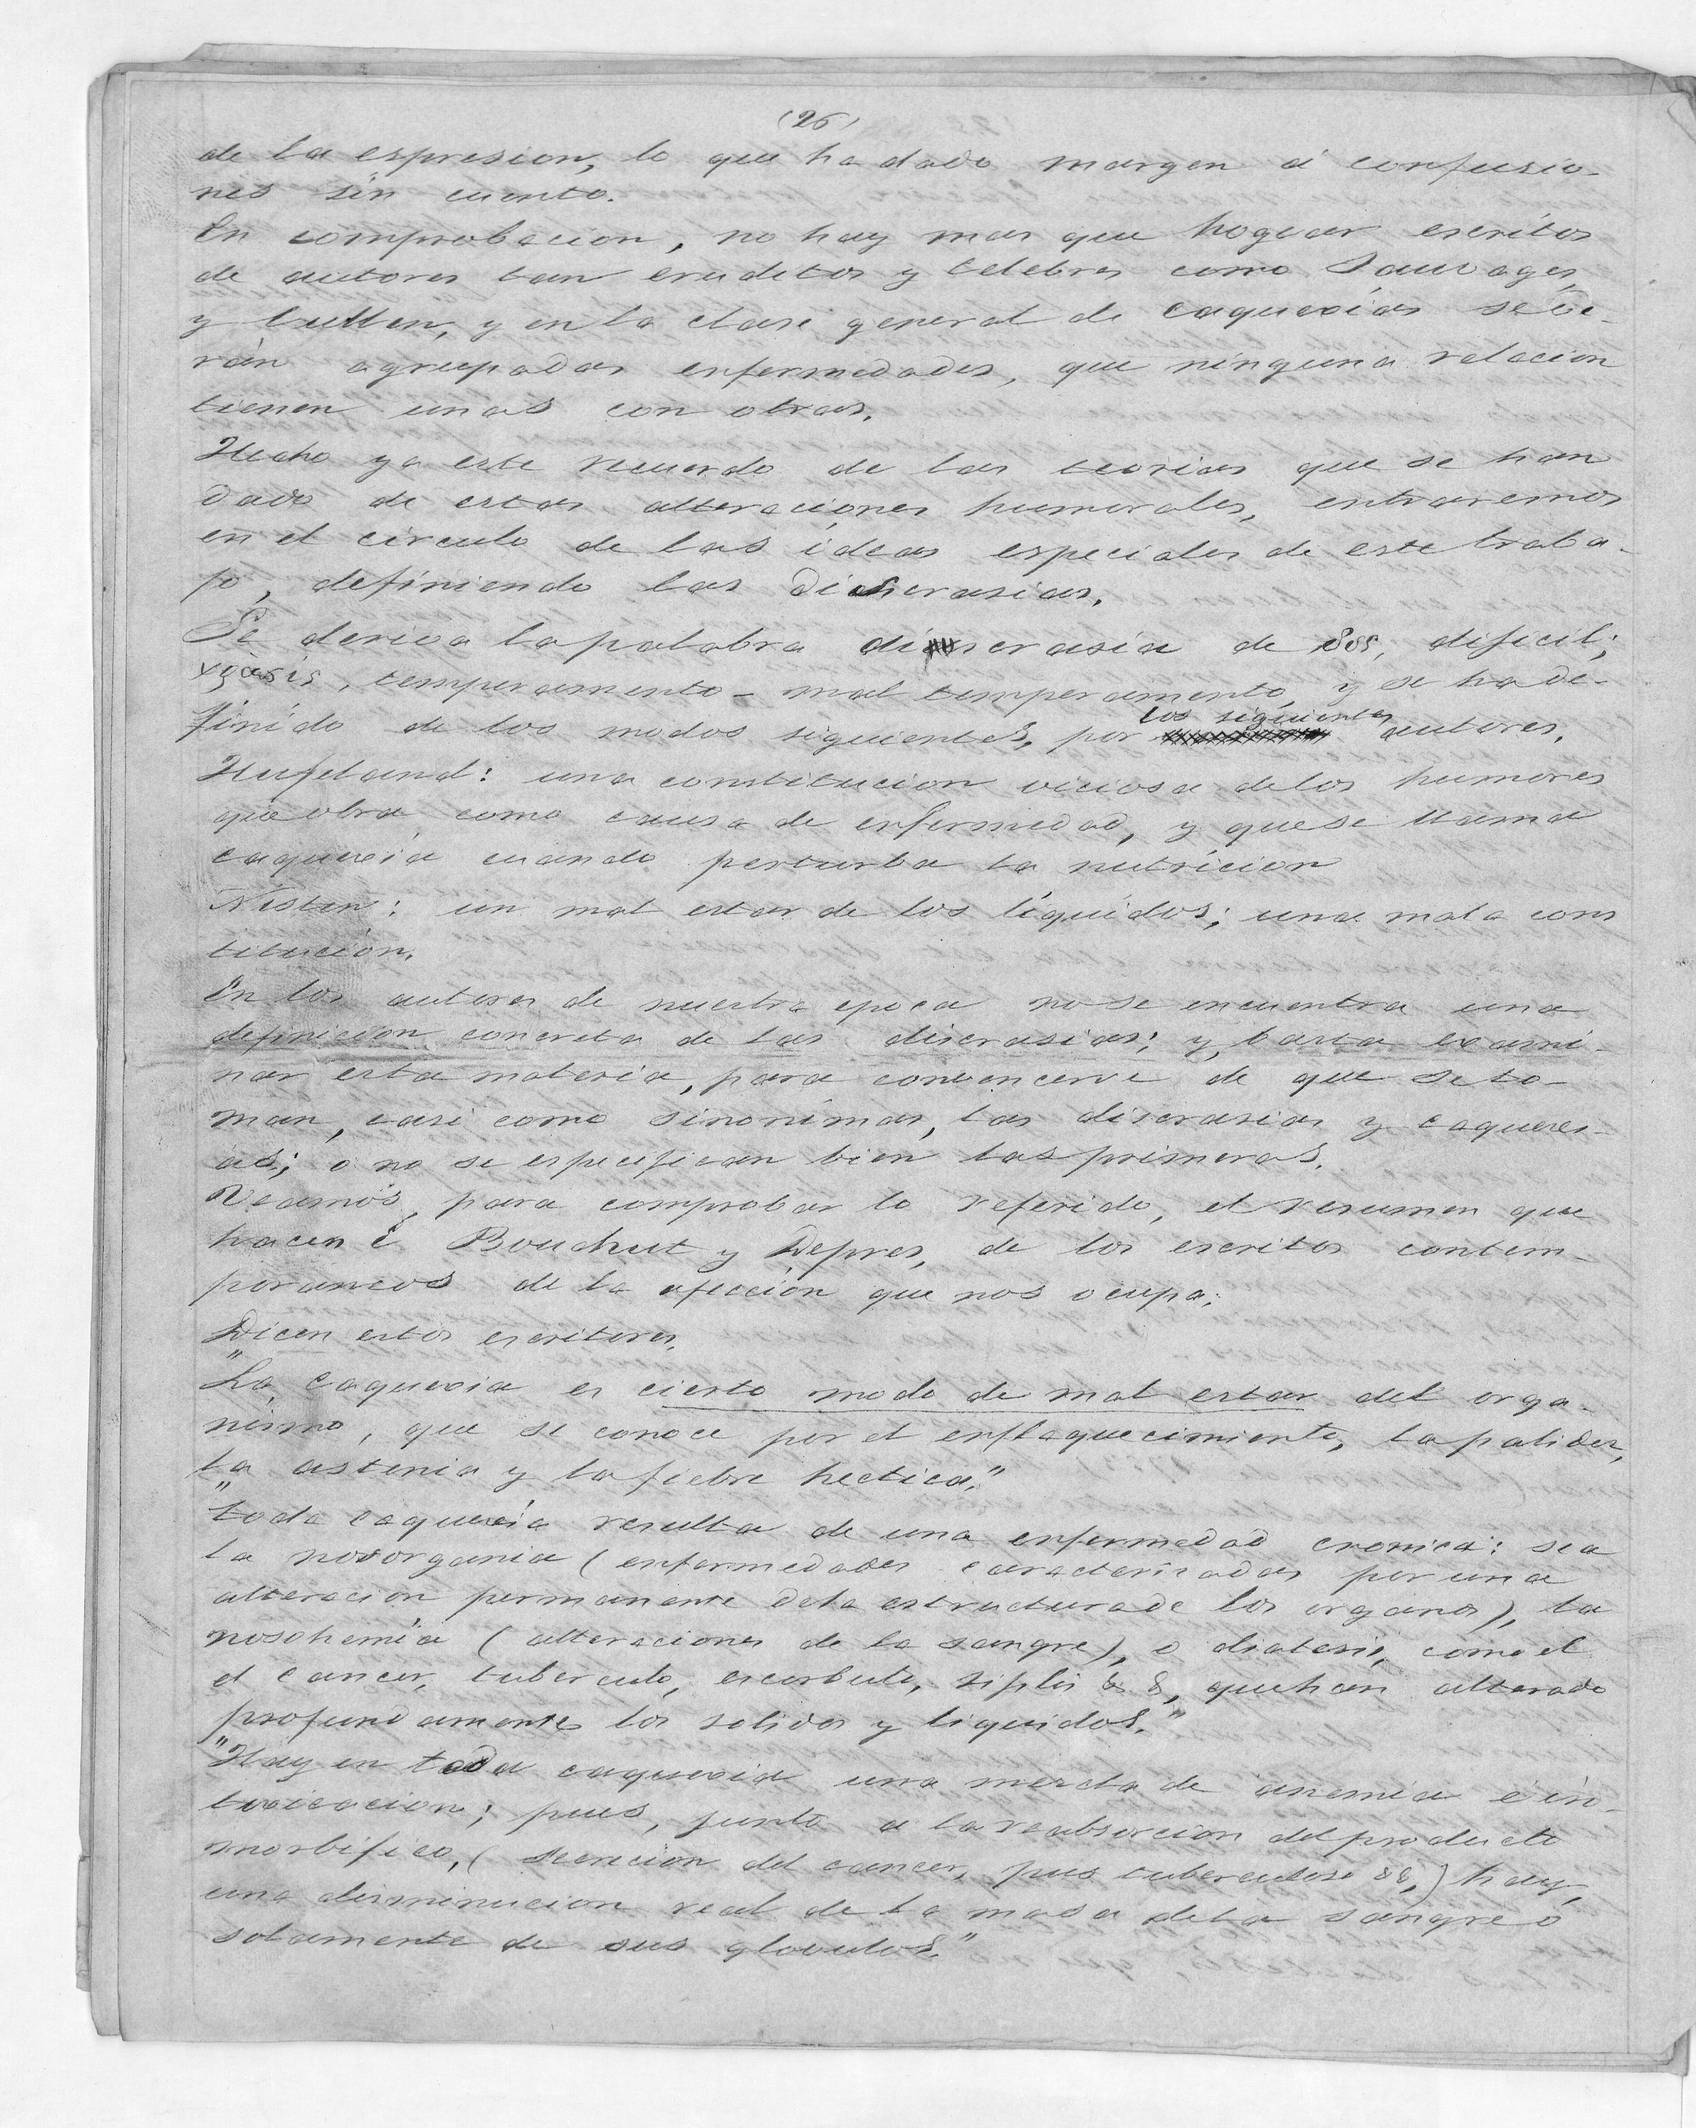 (26)
de la espresion, lo que ha dado margen á confusio-
nes sin cuento.
En comprobacion, no hay mas que hogear escritos
de autores tan eruditos y celebres como Sauvages,
y Cullen, y en la clase general de caquexias se ve-
rán agrupadas enfermedades, que ninguna relacion
tienen unas con otras.
Hecho ya este recuerdo de las teorias que se han
dado de estas alteraciones humorales, entraremos
en el circulo de las ideas especiales de este traba-
jo, definiendo las discrasias.
Se deriva la palabra discrasia de δυς, dificil;
κράσις, temperamento - mal temperamento, y se ha de-
finido de los modos siguientes, por los siguientes autores.
Hufeland: una constitucion viciosa de los humores
que obra como causa de enfermedad, y que se llama
caquexia cuando perturba la nutricion
Nisten: un mal estar de los líquidos; una mala cons
titución.
En los autores de nuestra epoca no se encuentra una
definicion concreta de las discrasias; y, basta exami-
nar esta materia, para convencerse de que se to-
man, casi como sinonimas, las discrasias y caquexi-
as; o no se especifican bien las primeras.
Veamos, para comprobar lo referido, el resumen que
hacen E. Bouchut y Depres, de los escritos contem-
poraneos de la afeccion que nos ocupa:
Dicen estos escritores.
"La caquexia es cierto modo de mal estar del orga-
nismo, que se conoce por el enflaquecimiento, la palidez,
la astenia y la fiebre hectica."
"Toda caquexia resulta de una enfermedad cronica: sea
la nosorgania (enfermedades caracterizadas por una
alteracion permanente de la estructura de los organos), la
nosohemia (alteraciones de la sangre), o diatesis, como el
el cancer, tuberculo, escorbuto, sifilis & &, que han alterado
profundamente los solidos y liquidos."
"Hay en toda caquexia una mezcla de anemia é in-
toxicacion; pues, junto a la reabsorcion del producto
morbifico, (secrecion del cancer, pus tuberculoso &&,) hay,
una disminucion real de la masa de la sangre ó
solamente de sus globulos."